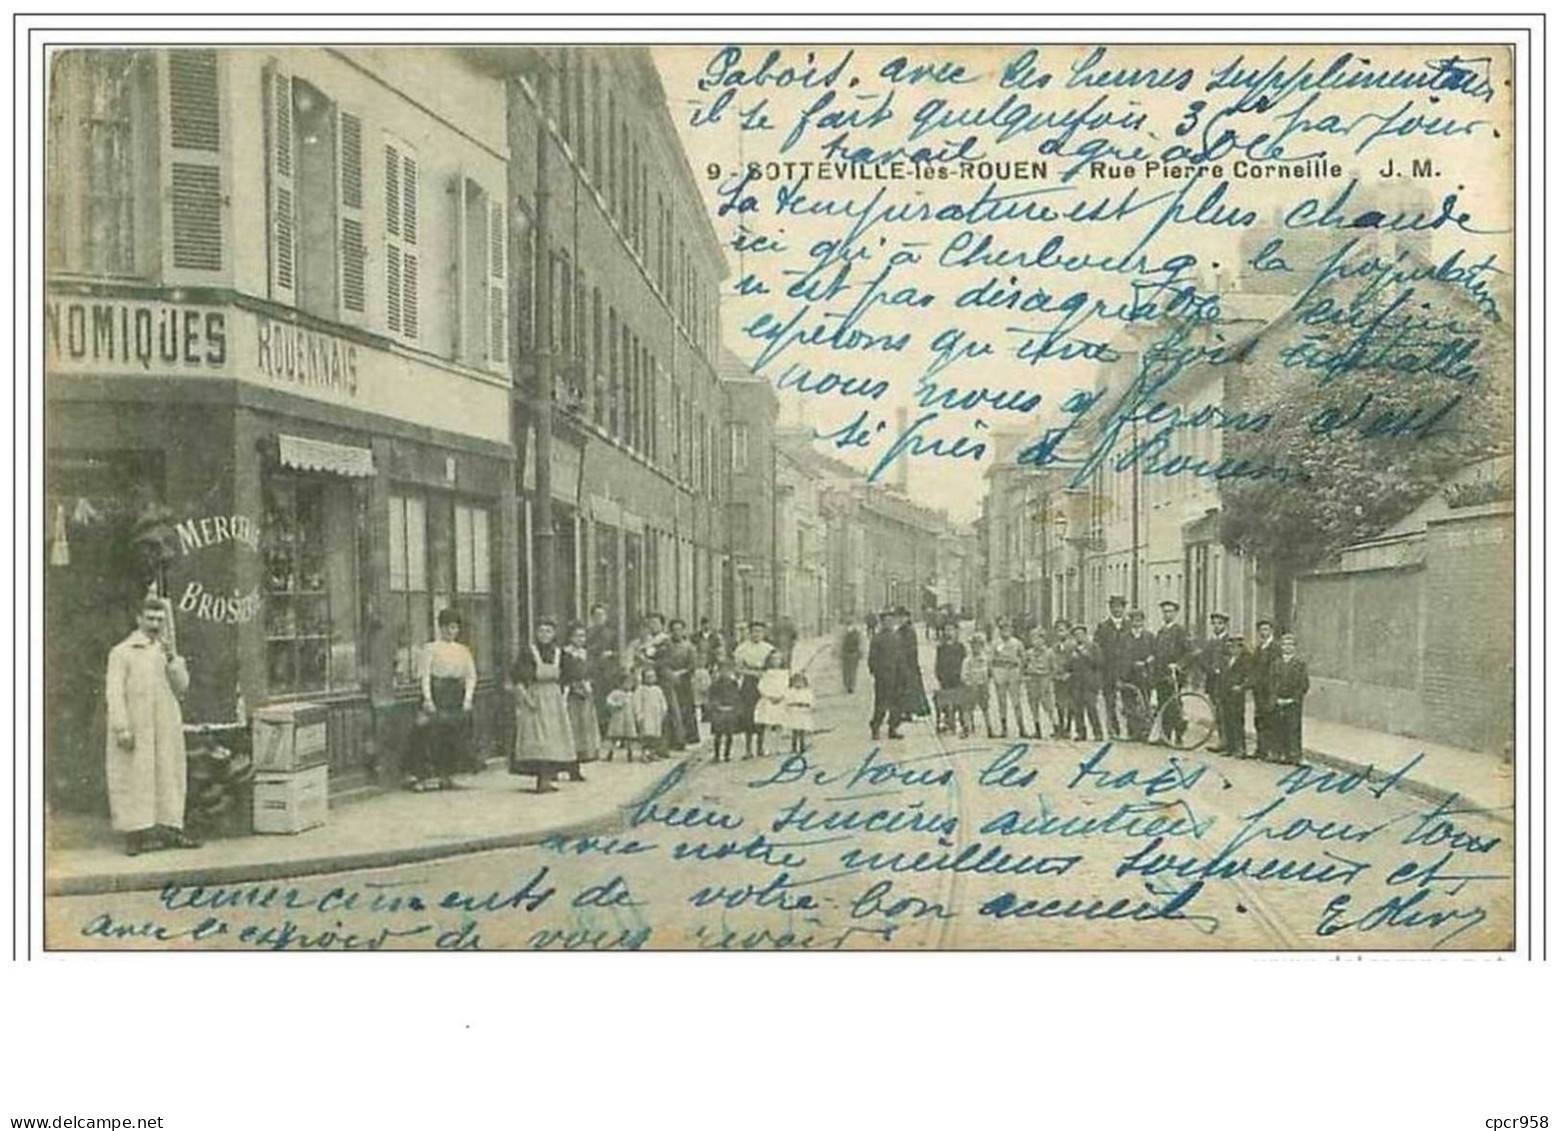 avec les heures supplémentaires
il se fait quelquefois 3 par jour.
travail agréable.
9 - SOTTEVILLE-lès-ROUEN Rue Pierre Corneille J. M.
La température est plus chaude
ici qu'à Cherbourg. La population
n'est pas désagréable enfin
espérons que
nous nous y ferons c'est
si près de Rouen
NOMIQUES ROUENNAIS
MERCERIE
BROSSERIE
De tous les trois.
bien sincères amitiés pour tous
avec notre meilleur souvenir et
remerciements de votre bon accueil.
avec l'espoir de vous revoir
www.delcampe.net
delcampe.net
cpcr958